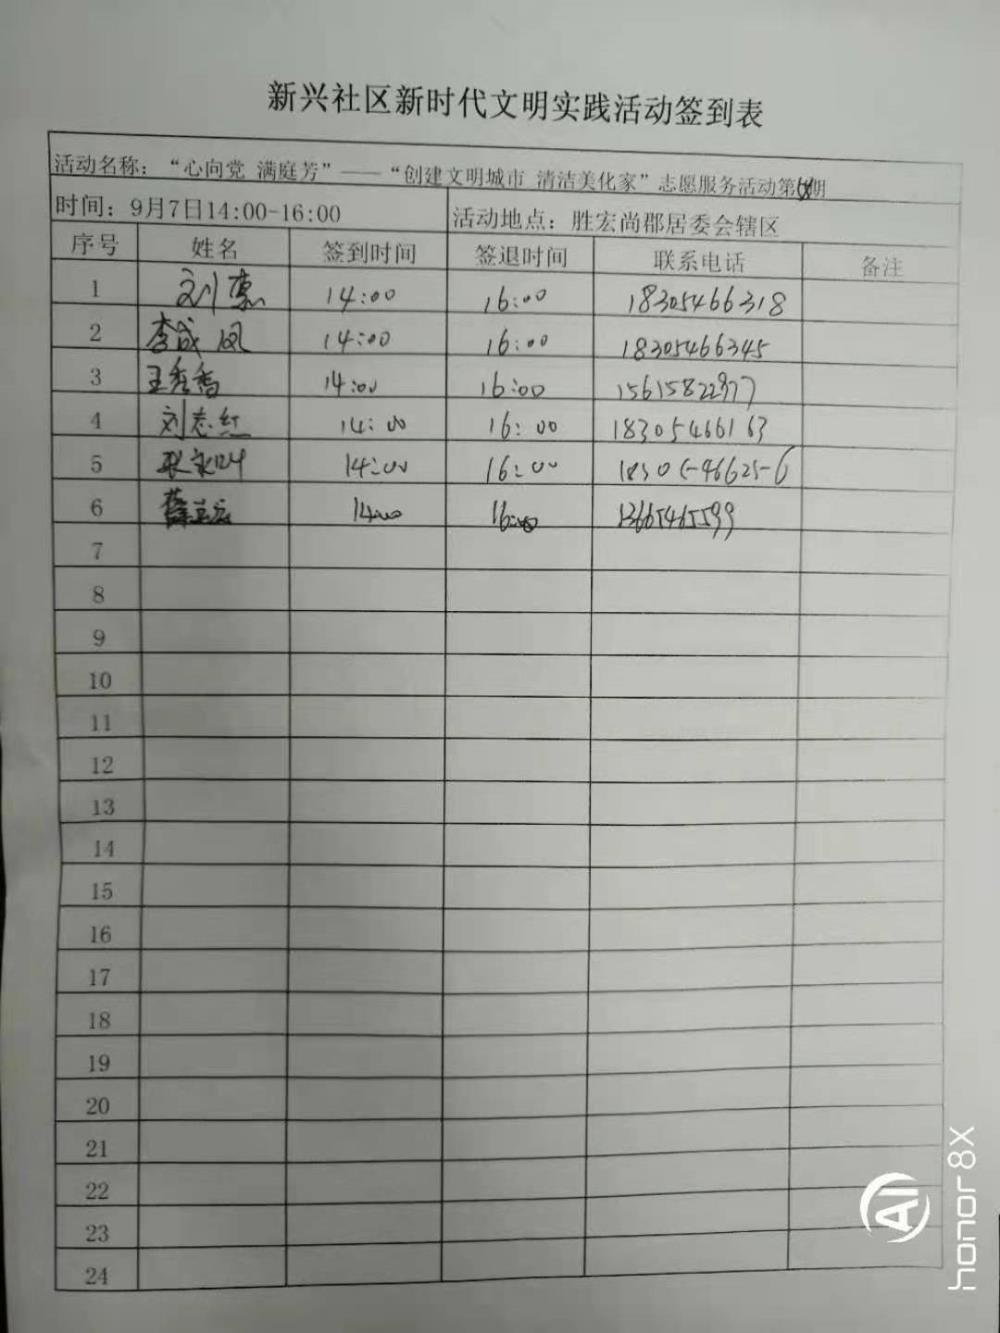 新兴社区新时代文明实践活动签到表
活动名称：“心向党 满庭芳”——“创建文明城市 清洁美化家”志愿服务活动第期
时间：9月7日14:00-16:00 活动地点：胜宏尚郡居委会辖区
序号 姓名 签到时间 签退时间 联系电话 备注
1 刘惠 14:00 16:00 18305466318
2 李成凤 14:00 16:00 18305466345
3 王秀香 14:00 16:00 15615822977
4 刘志红 14:00 16:00 18305466163
5 14:00 16:00 18305466256
6 14:00 16:00 13665465599
7
8
9
10
11
12
13
14
15
16
17
18
19
20
21
22
23
24
AI
honor 8X